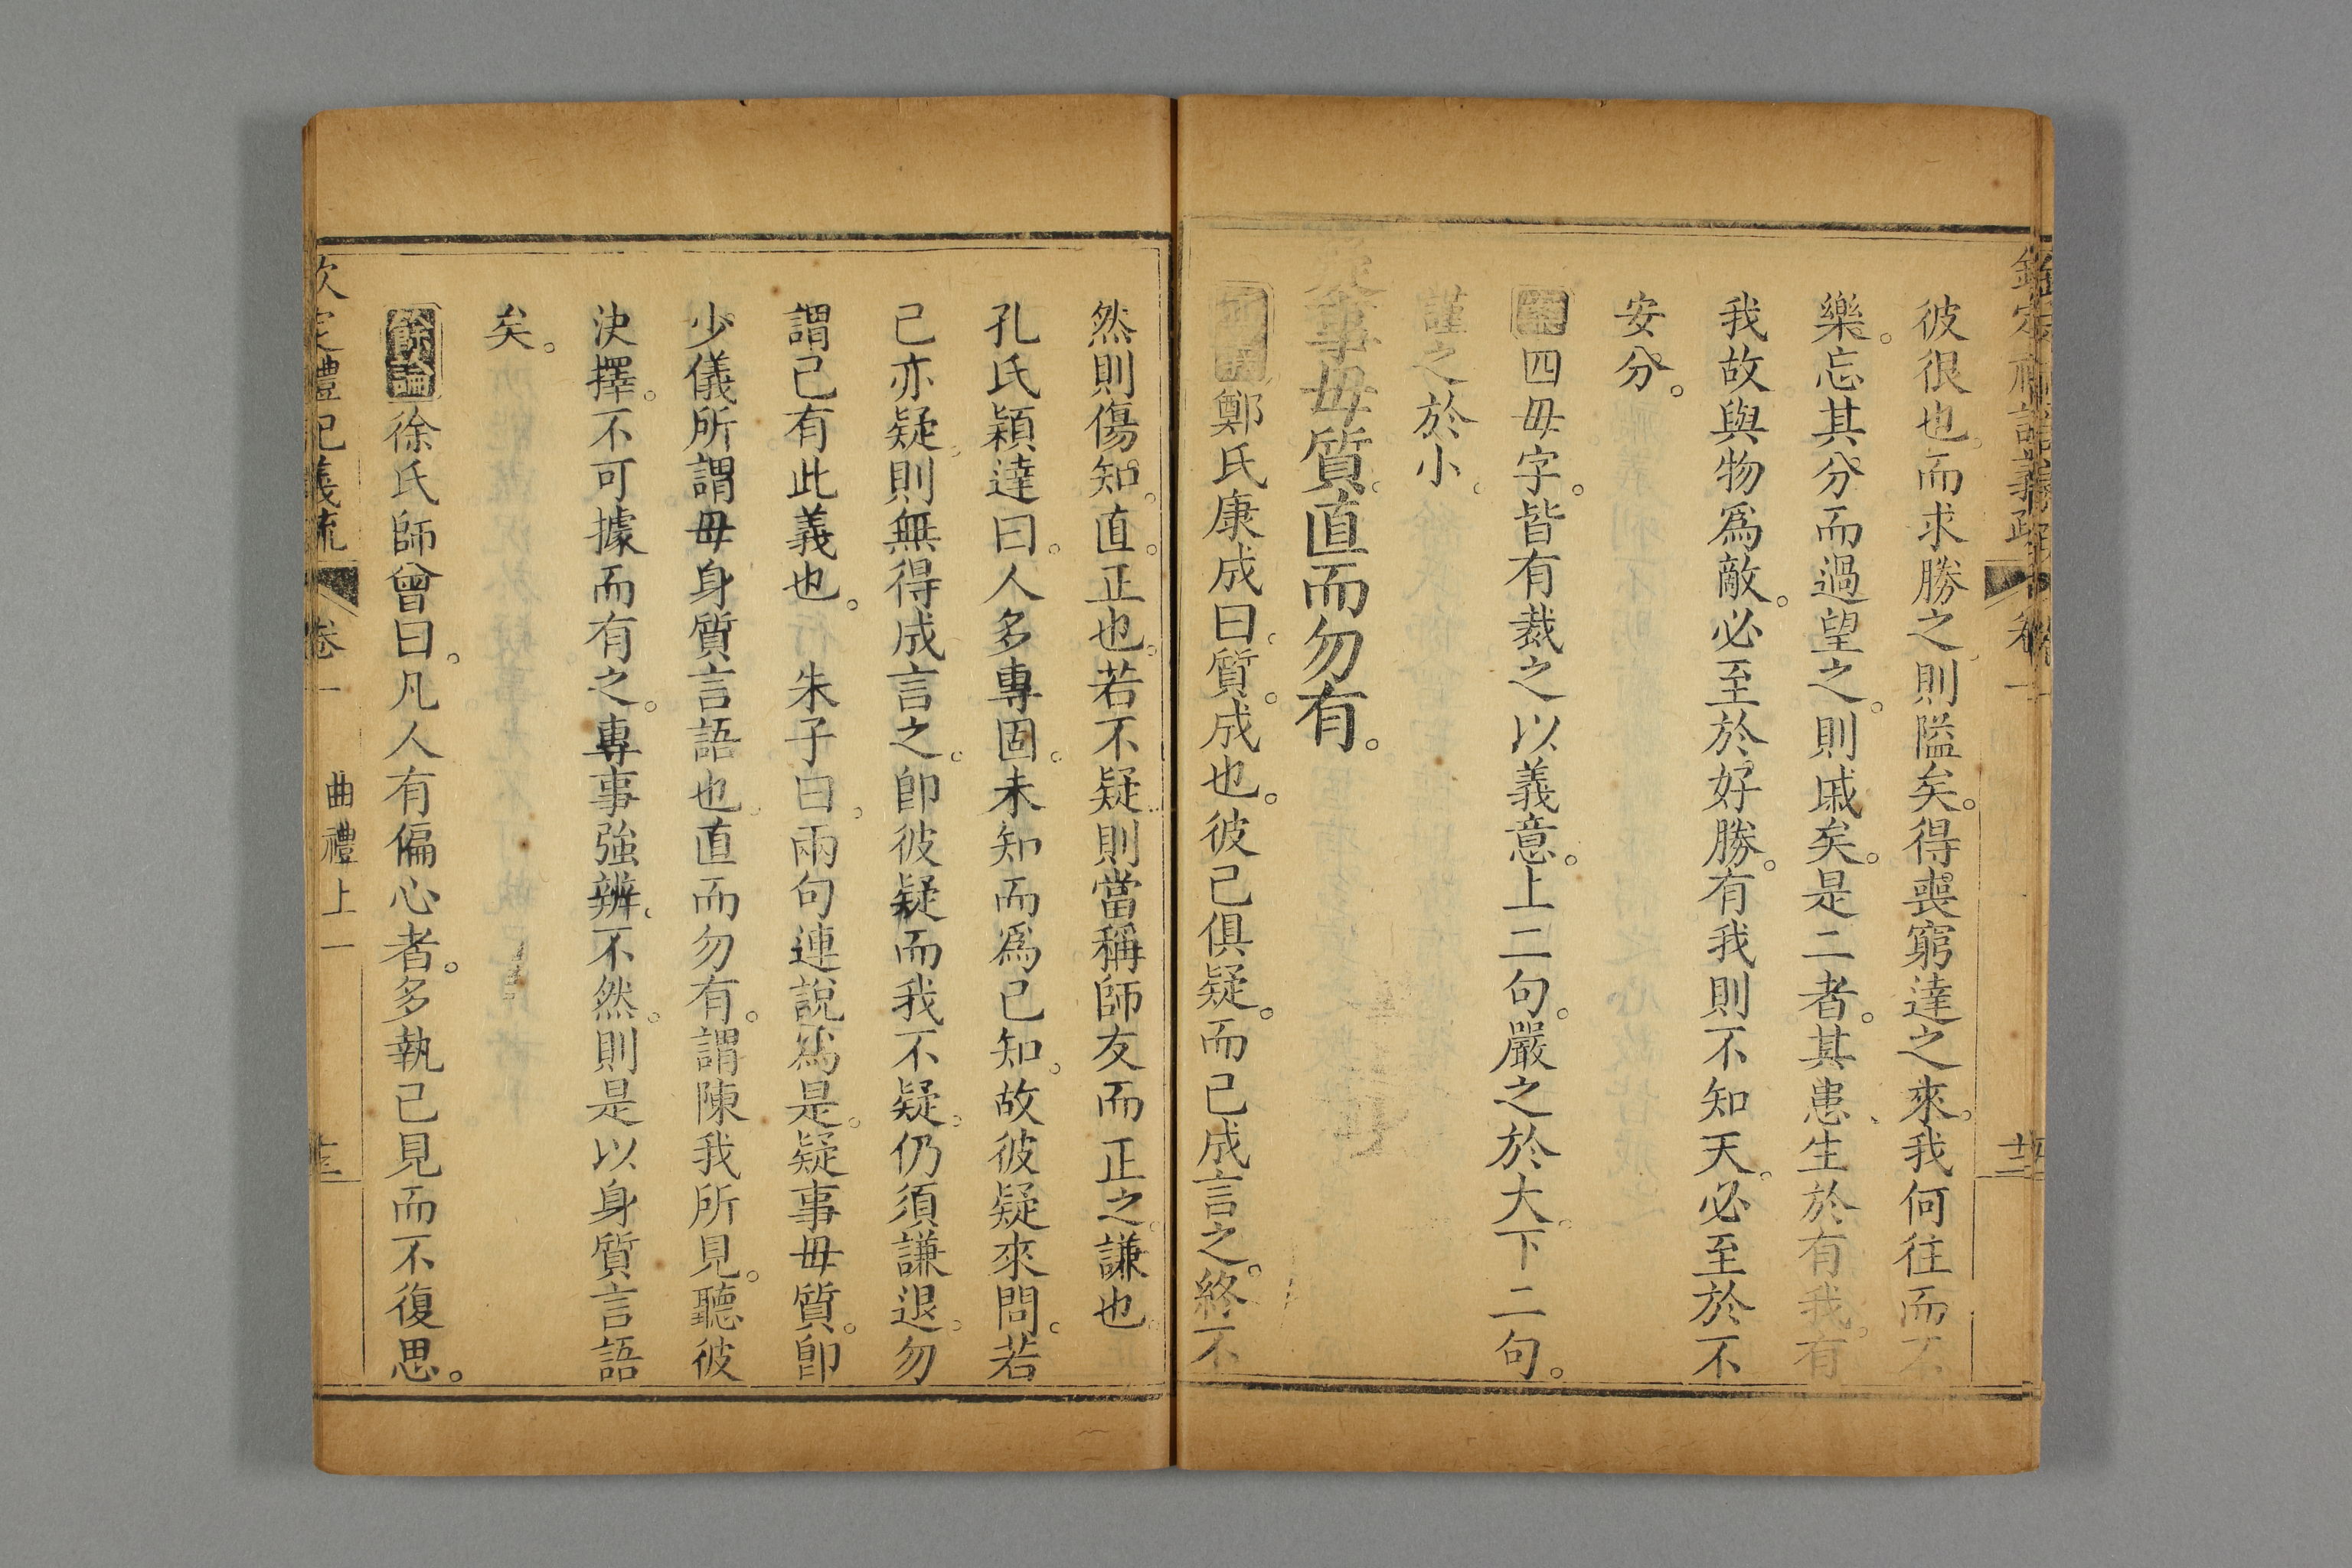 彼很也而求勝之則隘矣。得喪窮達之來。我何往而不
樂。忘其分而過望之。則戚矣。是二者。其患生於有我。有
我故與物爲敵。必至於好勝。有我則不知天。必至於不
安分。
四毋字。皆有裁之以義意。上二句。嚴之於大。下二句。
謹之於小。
疑事毋質。直而勿有。
鄭氏康成曰。質。成也。彼己俱疑。而己成言之。終不
然則傷知。直。正也。若不疑則當稱師友而正之。謙也。
孔氏穎達曰。人多專固。未知而爲己知。故彼疑來問。若
己亦疑。則無得成言之。卽彼疑而我不疑。仍須謙退。勿
謂己有此義也。 朱子曰。兩句連說爲是。疑事毋質。卽
少儀所謂毋身質言語也。直而勿有。謂陳我所見。聽彼
決擇。不可據而有之。專事強辨。不然。則是以身質言語
矣。
餘論徐氏師曾曰。凡人有偏心者。多執己見而不復思。
欽定禮記義疏 卷一 曲禮上一